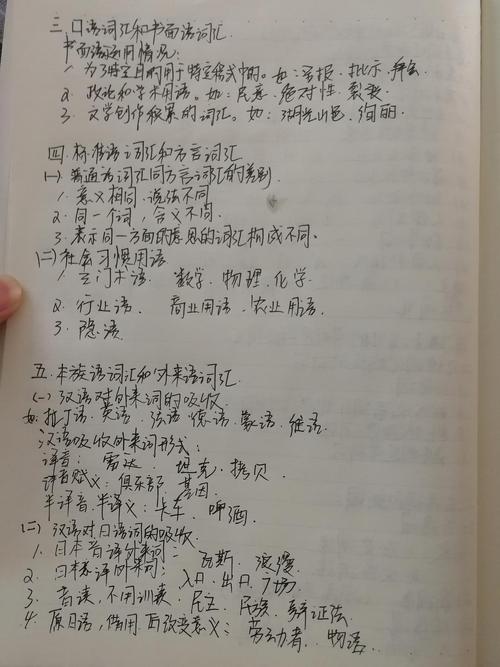 三 口语词汇和书面语词汇.
书面语运用情况:
1. 为了特定目的用于特定格式中的。如: 呈报. 批示. 拜会
2. 政论和学术用语。如: 民意. 绝对性. 裂变
3. 文学创作积累的词汇。如: 湖光山色. 绚丽.
四. 标准语词汇和方言词汇
(一). 普通话词汇同方言词汇的差别.
1. 意义相同, 说法不同
2. 同一个词, 含义不同.
3. 表示同一方面的意思的词汇构成不同。
(二) 社会习惯用语
1. 专门术语. 数学. 物理. 化学.
2. 行业语. 商业用语. 农业用语.
3. 隐语.
五. 本族语词汇和外来语词汇.
(一) 汉语对外来词的吸收.
如: 拉丁语. 英语. 法语. 德语. 蒙语. 维语.
汉语吸收外来词形式:
译音: 雷达. 坦克. 拷贝.
译音赋义: 俱乐部 基因.
半译音. 半译义: 卡车. 啤酒.
(二) 汉语对日语词的吸收.
1. 日本音译外来词: 瓦斯. 浪漫.
2. 日本意译外来词: 入口. 出口. 广场.
3. 音读, 不用训读: 民主. 民族. 辩证法.
4. 原日语, 借用. 改变意义: 劳动者. 物语.